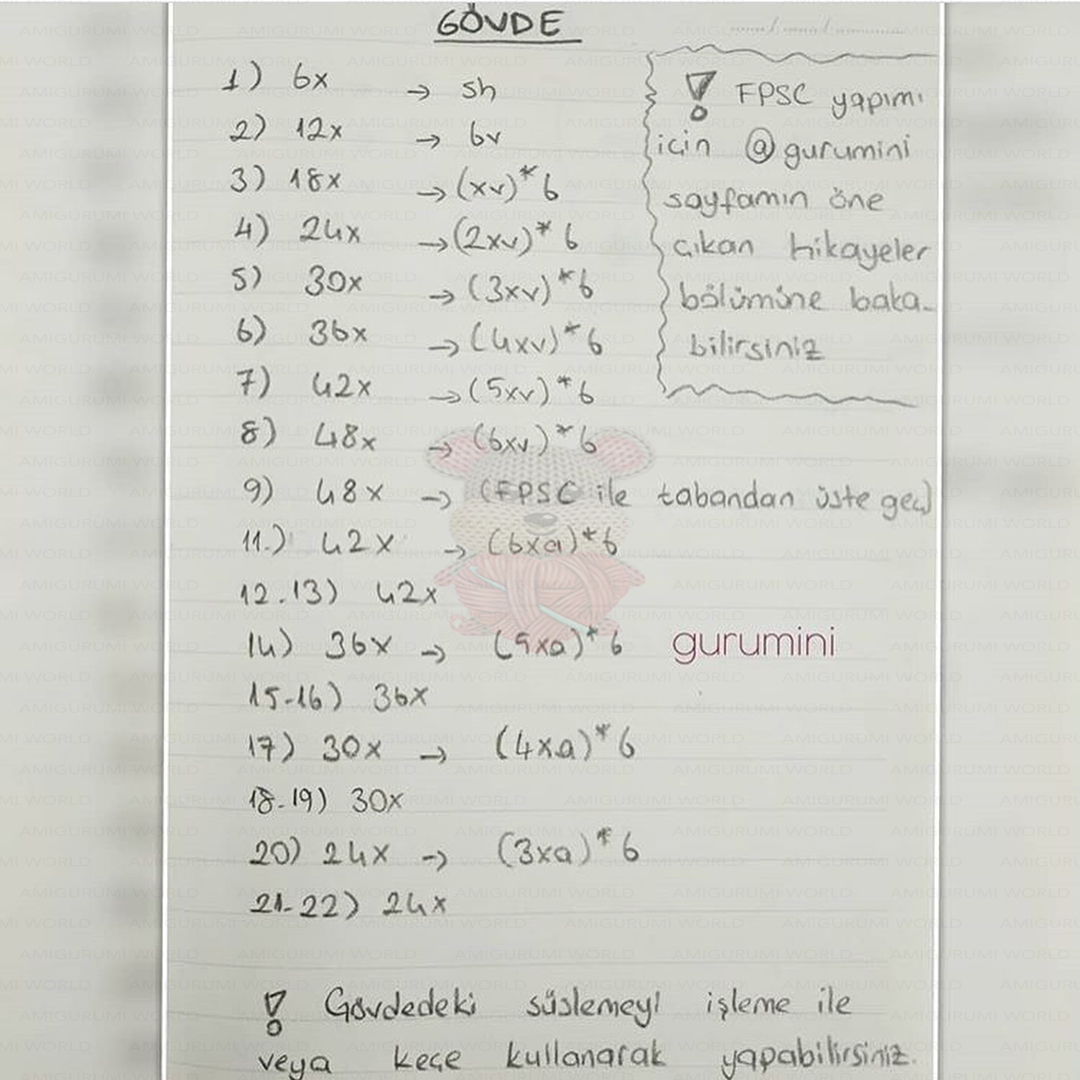 GÖVDE
1) 6x → sh
2) 12x → 6v
3) 18x → (xv)*6
4) 24x → (2xv)*6
5) 30x → (3xv)*6
6) 36x → (4xv)*6
7) 42x → (5xv)*6
8) 48x → (6xv)*6
9) 48x → (FPSC ile tabandan üste geç)
11.) 42x → (6xa)*6
12-13) 42x
14) 36x → (5xa)*6
15-16) 36x
17) 30x → (4xa)*6
18-19) 30x
20) 24x → (3xa)*6
21-22) 24x
! FPSC yapımı
için @gurumini
sayfamın öne
çıkan hikayeler
bölümüne baka-
bilirsiniz
gurumini
! Gövdedeki süslemeyi işleme ile
veya keçe kullanarak yapabilirsiniz.
AMIGURUMI WORLD